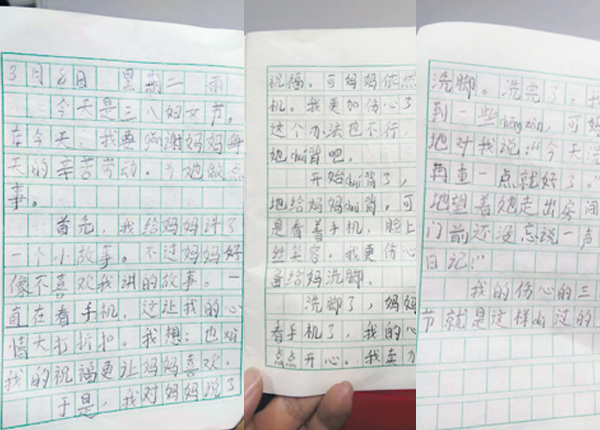 3月8日 星期二 雨
今天是三八妇女节。
在今天,我要gǎn谢妈妈每
天的辛苦劳动。为她做点
事。
首先,我给妈妈讲了
一个小故事。不过妈妈好
像不喜欢我讲的故事。一
直在看手机。这让我的心
情大打折扣。我想:也xǔ
我的祝福更让妈妈喜欢。
于是,我对妈妈说了
祝福。可妈妈依然
机。我更加伤心了
这个办法也不行,
她chuí背吧。
开始chuí背了,
地给妈妈chuí背。可
是看着手机,脸上
丝笑容。我更伤心
备给妈洗脚。
洗脚了,妈妈
看手机了,我的心
点点开心。我卖力
洗脚。洗完了,我
到一些ān,可妈
地对我说:“今天洗
再重一点就好了。”
地望着她走出房间
门前还没忘说一声
日记。”
我的伤心的三
节就是这样dù过的